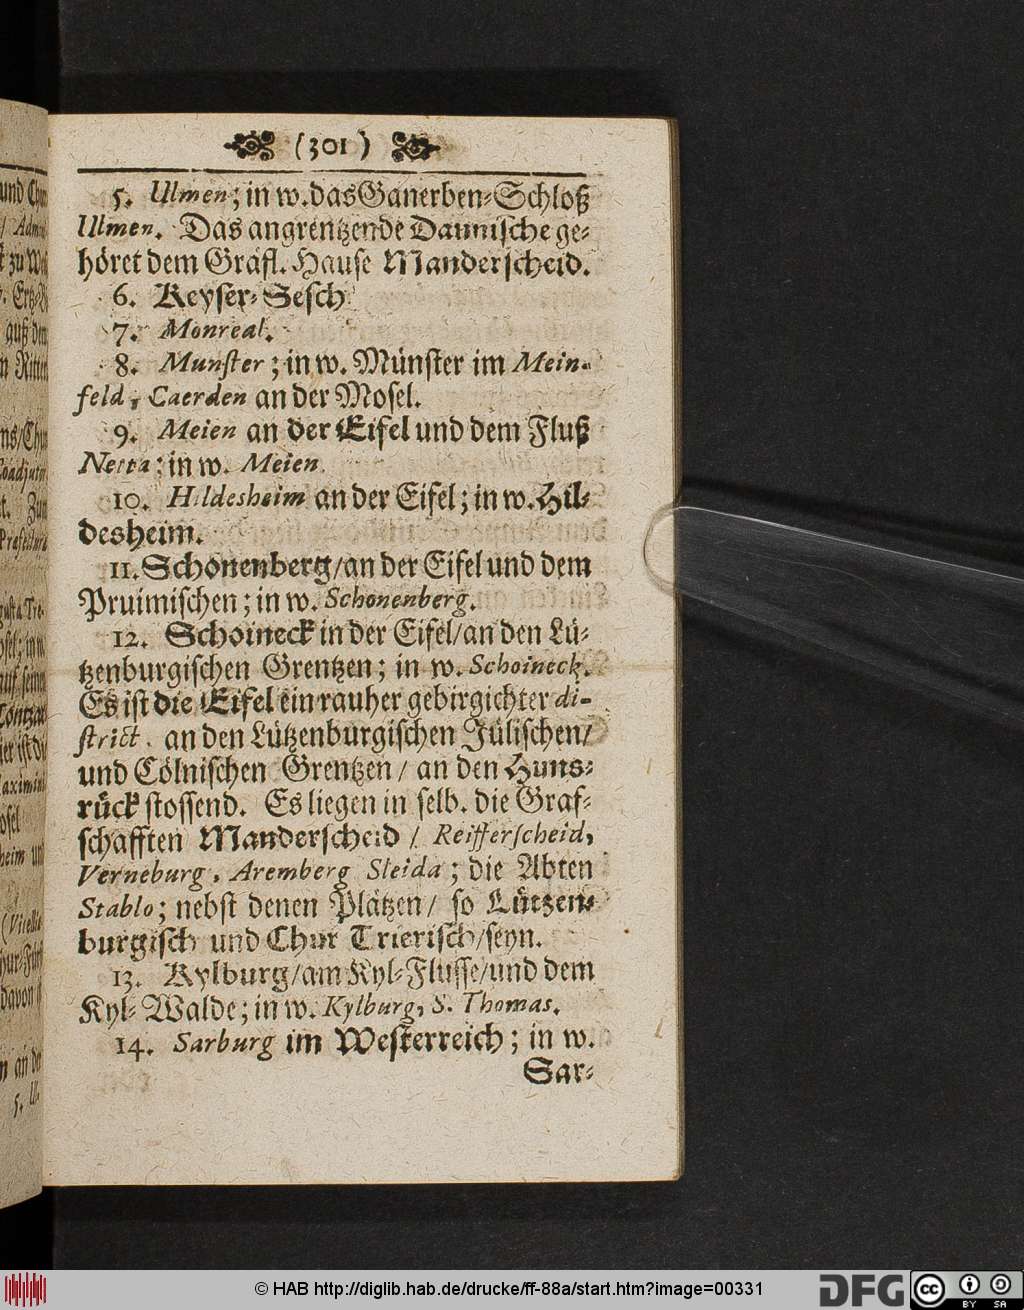 (301)
5. Ulmen; in w. das Ganerben-Schloß
Ulmen. Das angrentzende Daunische ge-
höret dem Gräfl. Hause Manderscheid.
6. Keyser-Sesch
7. Monreal.
8. Munster; in w. Münster im Mein-
feld, Caerden an der Mosel.
9. Meien an der Eifel und dem Fluß
Netta; in w. Meien.
10. Hildesheim an der Eifel; in w. Hil-
desheim.
11. Schönenberg/an der Eifel und dem
Pruimischen; in w. Schonenberg.
12. Schoineck in der Eifel/an den Lü-
tzenburgischen Grentzen; in w. Schoineck.
Es ist die Eifel ein rauher gebirgichter di-
strict. an den Lützenburgischen Jülischen/
und Cölnischen Grentzen/ an den Huns-
rück stossend. Es liegen in selb. die Graf-
schafften Manderscheid / Reifferscheid,
Verneburg, Aremberg Sleida; die Abten
Stablo; nebst denen Plätzen/ so Lützen-
burgisch und Chur Trierisch/seyn.
13. Kylburg/am Kyl-Flusse/und dem
Kyl-Walde; in w. Kylburg, S. Thomas.
14. Sarburg im Westerreich; in w.
Sar-
© HAB http://diglib.hab.de/drucke/ff-88a/start.htm?image=00331
DFG
cc BY SA